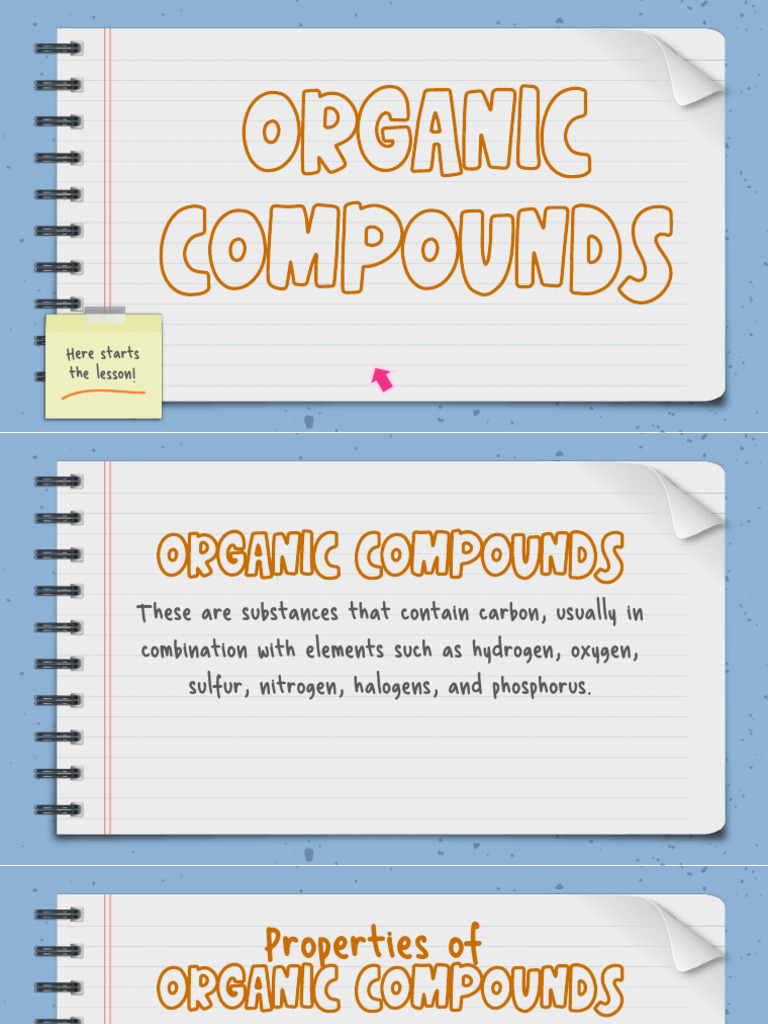 ORGANIC
COMPOUNDS
Here starts
the lesson!
ORGANIC COMPOUNDS
These are substances that contain carbon, usually in
combination with elements such as hydrogen, oxygen,
sulfur, nitrogen, halogens, and phosphorus.
Properties of
ORGANIC COMPOUNDS